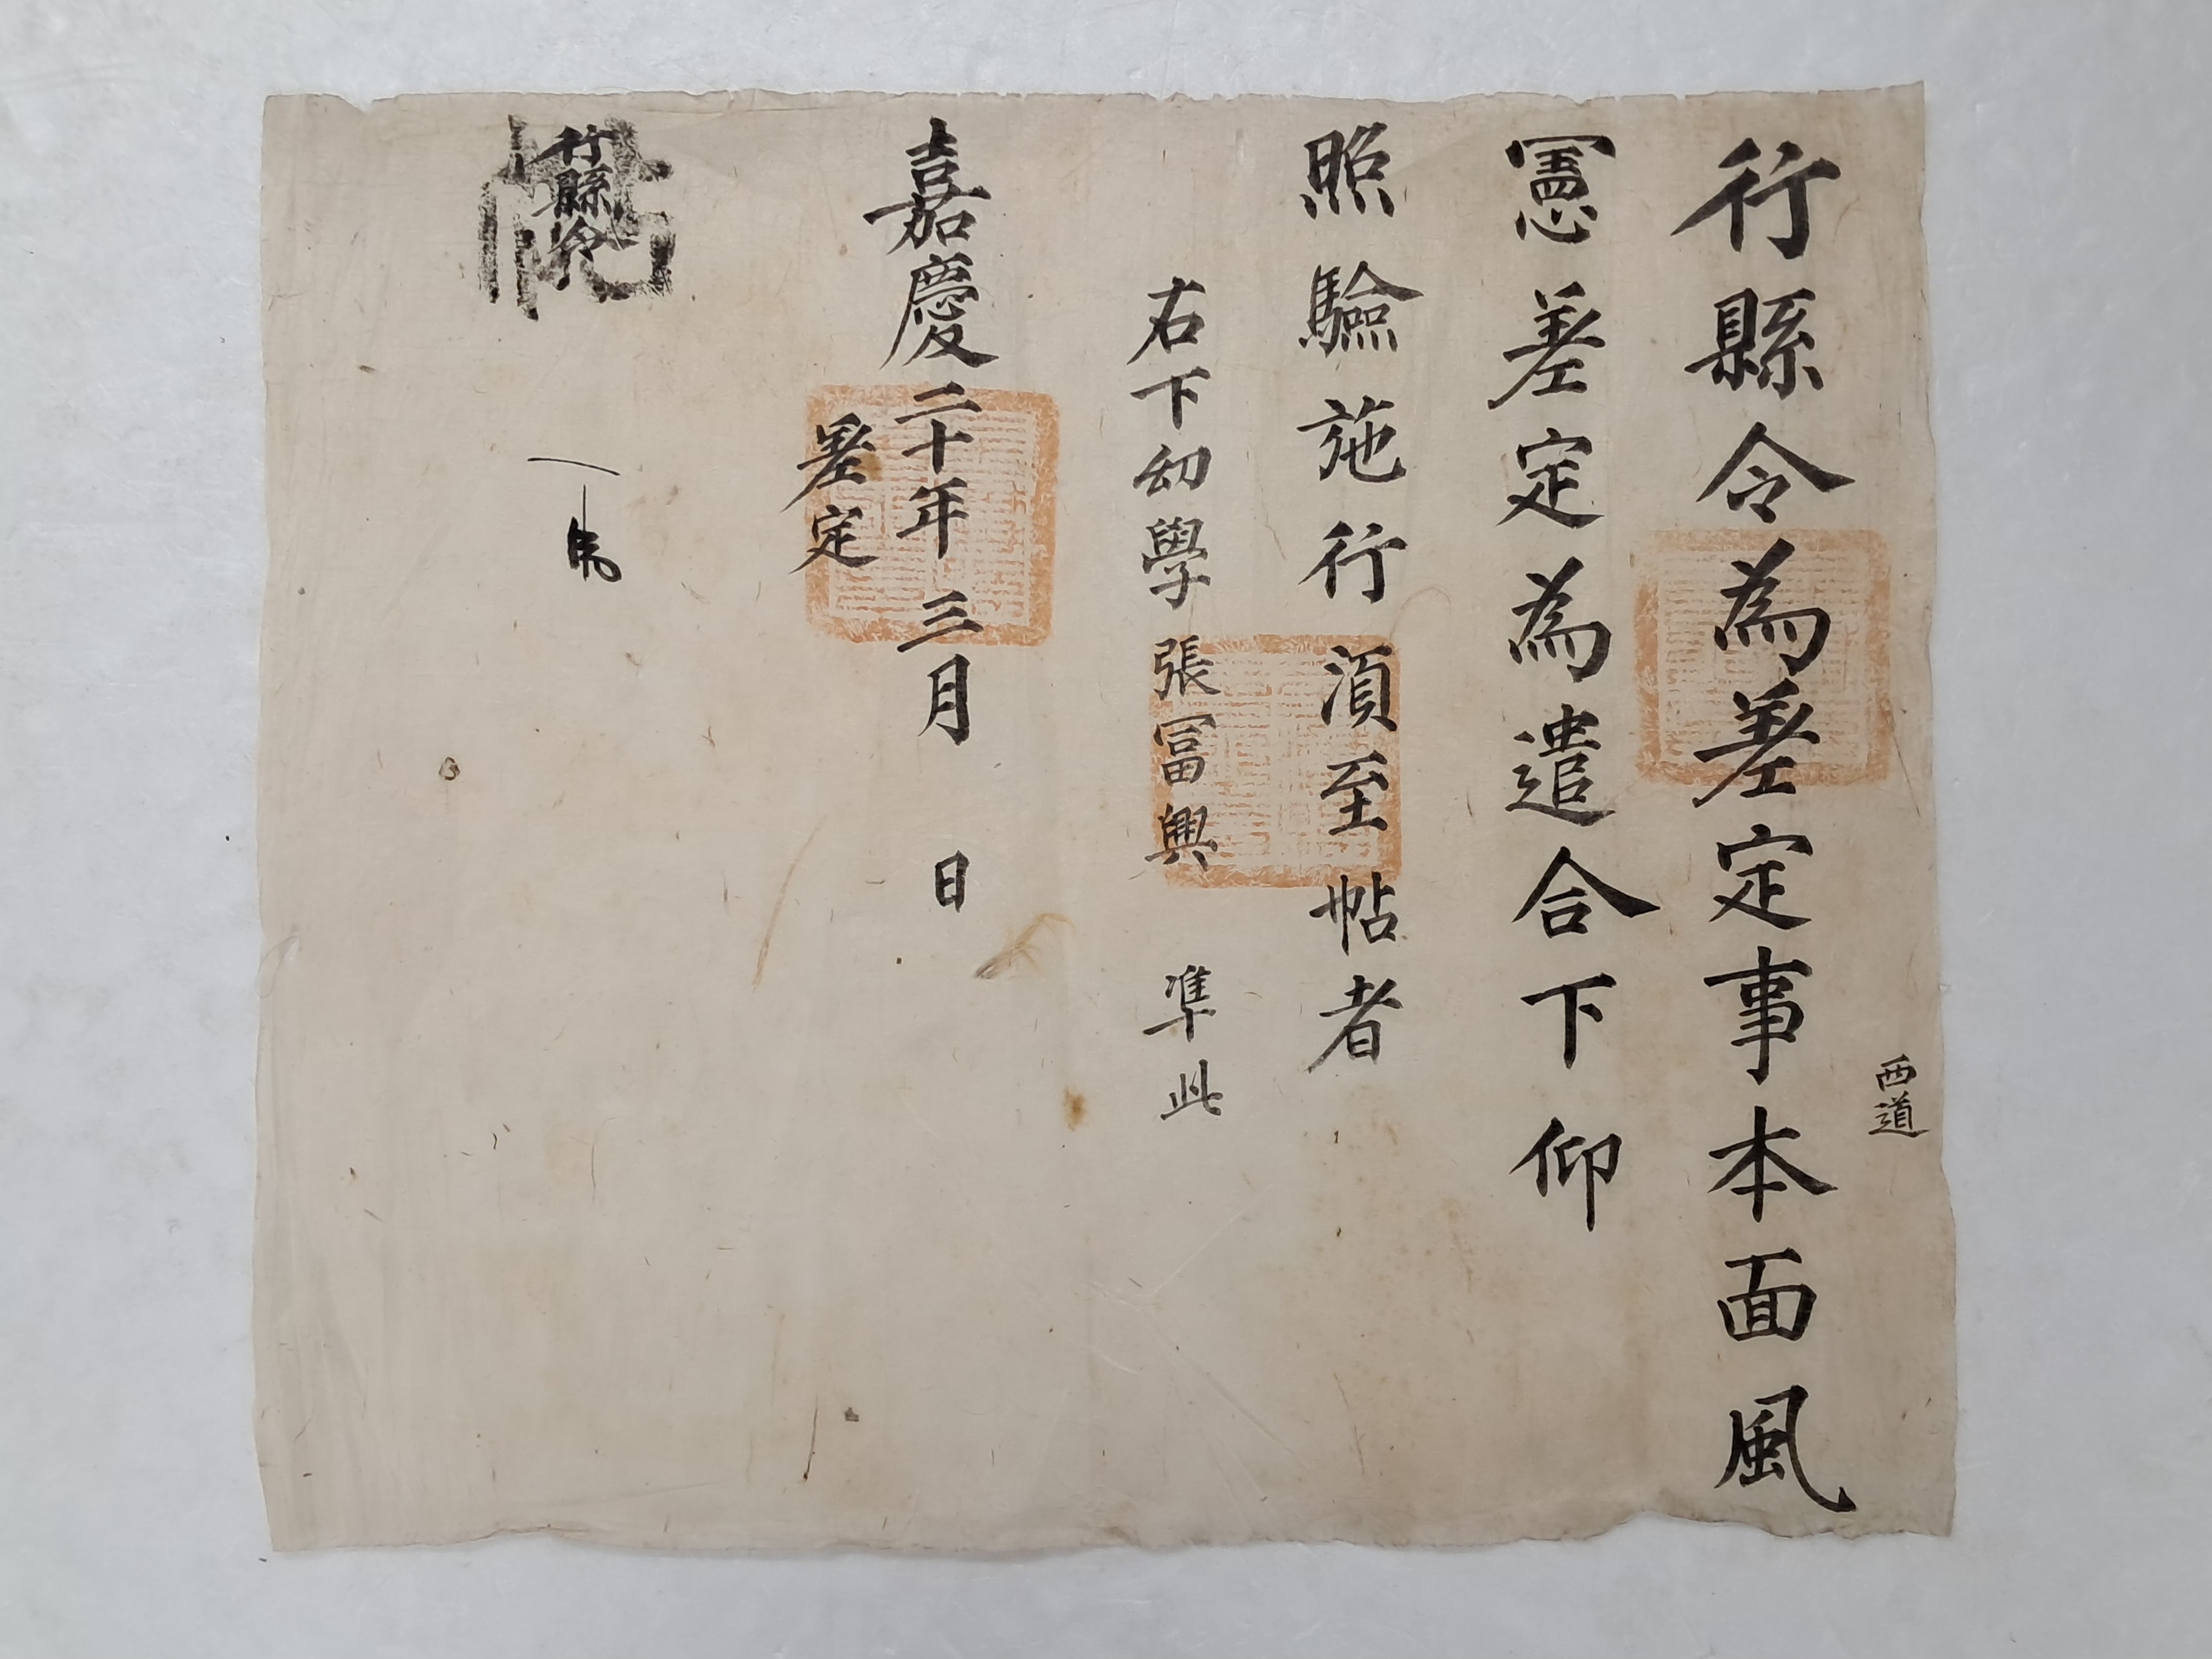 西道
行縣令為差定事本面風
憲差定為遣合下仰
照驗施行湏至帖者
右下幼學張冨興 準此
嘉慶二十年三月 日
差定
行縣令
帖